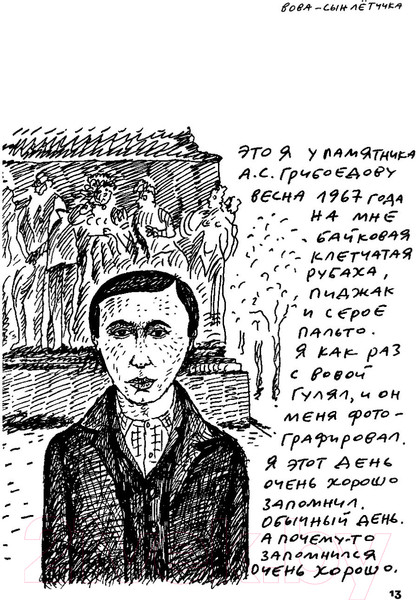 ВОВА – СЫН ЛЁТЧИКА
ЭТО Я У ПАМЯТНИКА
А.С. ГРИБОЕДОВУ
ВЕСНА 1967 ГОДА
НА МНЕ
БАЙКОВАЯ
КЛЕТЧАТАЯ
РУБАХА,
ПИДЖАК
И СЕРОЕ
ПАЛЬТО.
Я КАК РАЗ
С ВОВОЙ
ГУЛЯЛ, И ОН
МЕНЯ ФОТО-
ГРАФИРОВАЛ.
Я ЭТОТ ДЕНЬ
ОЧЕНЬ ХОРОШО
ЗАПОМНИЛ.
ОБЫЧНЫЙ ДЕНЬ.
А ПОЧЕМУ-ТО
ЗАПОМНИЛСЯ
ОЧЕНЬ ХОРОШО.
13